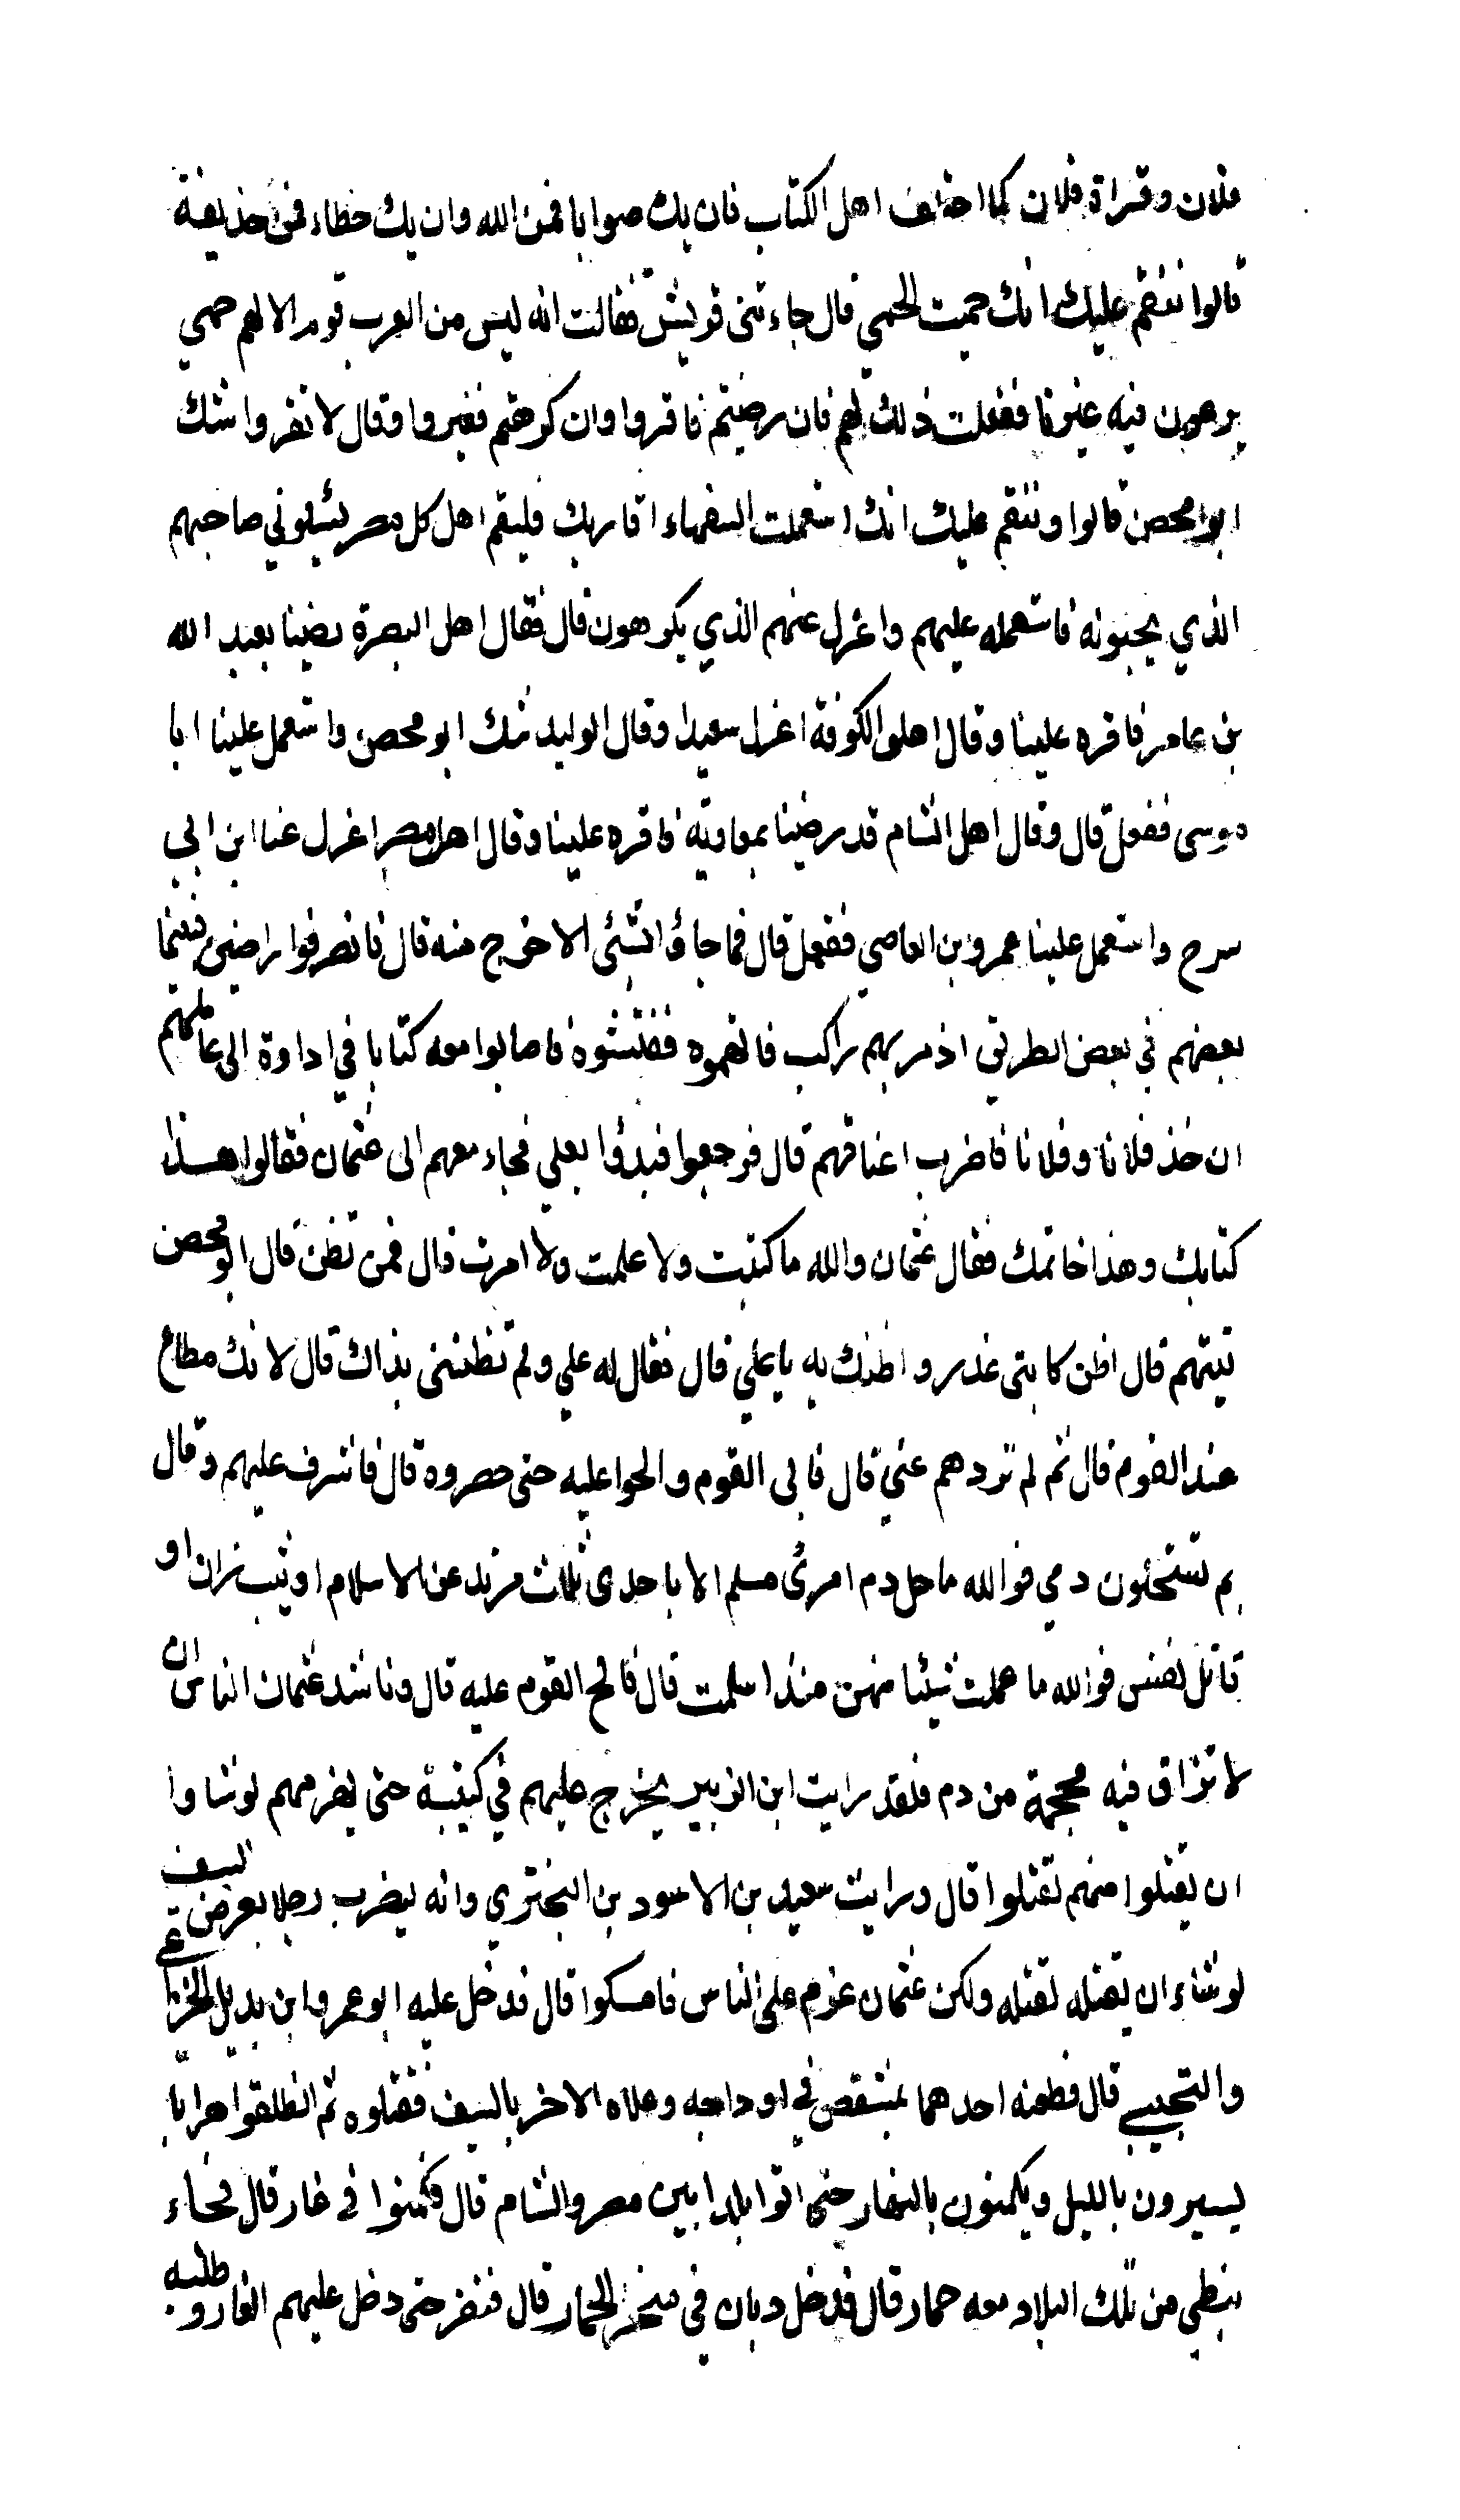 فلان وقراة فلان كما اختلف اهل الكتاب فان يك صوابا فمن الله وان يك خطاء فمن حذيفة
قالوا ننقم عليك انك حميت الحمى قال جاءتنى قريش فقالت انه ليس من العرب قوم الا لهم حمى
يرعون فيه غيرنا ففعلت ذلك لهم فان رضيتم فاقروا وان كرهتم فغيروا وقال لا تقروا شك
ابو محصن قالوا وننقم عليك انك استعملت السفهاء اقاربك فليقم اهل كل مصر يسئلوني صاحبهم
الذي يحبونه فاستعمله عليهم واعزل عنهم الذي يكرهون قال فقال اهل البصرة رضينا بعبد الله
بن عامر فاقره علينا وقال اهل الكوفة اعزل سعيدا وقال الوليد شك ابو محصن واستعمل علينا ابا
موسى ففعل قال وقال اهل الشام قد رضينا بمعاوية فاقره علينا وقال اهل مصر اعزل عنا ابن ابي
سرح واستعمل علينا عمرو بن العاصي ففعل قال فما جاؤا بشئ الا خرج منه قال فانصرفوا راضين فبينما
بعضهم في بعض الطريق اذ مر بهم راكب فاتهموه ففتشوه فاصابوا معه كتابا في اداوة الى عاملهم
ان خذ فلانا وفلانا فاضرب اعناقهم قال فرجعوا فبدؤا بعلي فجاء معهم الى عثمان فقالوا هذا
كتابك وهذا خاتمك فقال عثمان والله ما كتبت ولا علمت ولا امرت قال فمن تظن قال ابو محصن
تتهم قال اظن كاتبى غدر واظنك به يا علي قال فقال له علي ولم تظننى بذاك قال لانك مطاع
عند القوم قال ثم لم تردهم عني قال فابى القوم والحوا عليه حتى حصروه قال فاشرف عليهم وقال
بم تستحلون دمي فوالله ما حل دم امرئ مسلم الا باحدى ثلاث مرتد عن الاسلام او ثيب زان او
قاتل نفس فوالله ما عملت شيئا منهن منذ اسلمت قال فالح القوم عليه قال وناشد عثمان الناس ان
لا تراق فيه محجمة من دم فلقد رايت ابن الزبير يخرج عليهم في كتيبة حتى يهزمهم لو شاوا
ان يقتلوا منهم لقتلوا قال ورايت سعيد بن الاسود بن البختري وانه ليضرب رجلا بعرض السيف
لو شاء ان يقتله لقتله ولكن عثمان عزم على الناس فامسكوا قال فدخل عليه ابو عمرو ابن بديل الخزاعي
والتجيبي قال فطعنه احدهما بمشقص في اوداجه وعلاه الاخر بالسيف فقتلوه ثم انطلقوا هرابا
يسيرون بالليل ويكمنون بالنهار حتى اتوا بلدا بين مصر والشام قال فكمنوا في غار قال فجاء
نبطي من تلك البلاد معه حمار قال فدخل ذبان في منخر الحمار قال فنفر حتى دخل عليهم الغار وطلبه